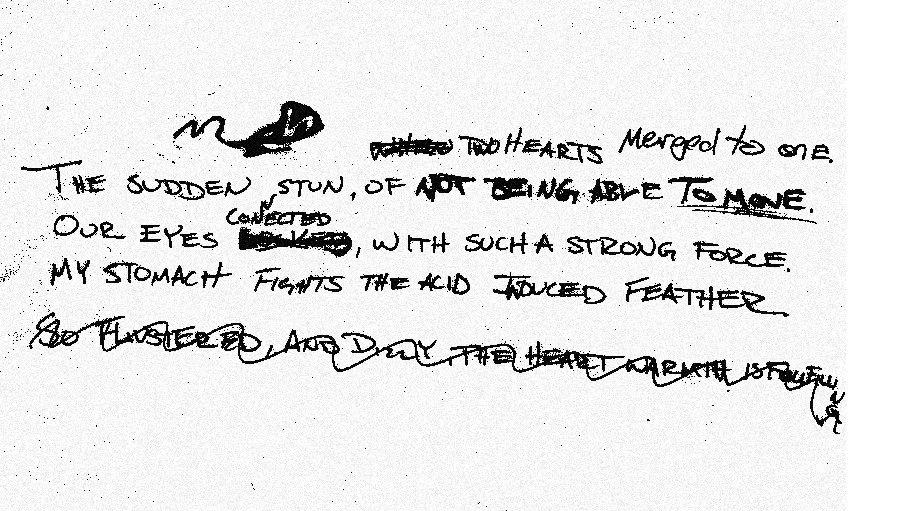 Two HEARTS Merged to one.
THE SUDDEN STUN, OF NOT BEING ABLE TO MOVE.
CONECTED
OUR EYES , WITH SUCH A STRONG FORCE.
MY STOMACH FIGHTS THE ACID INDUCED FEATHER
SO FLUSTERED, AND DIZZY, THE HEART WARMTH IS